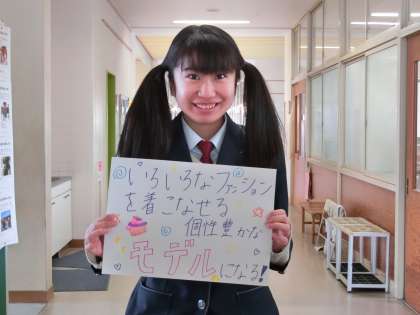 いろいろなファッション
を着こなせる
個性豊かな
モデルになる!